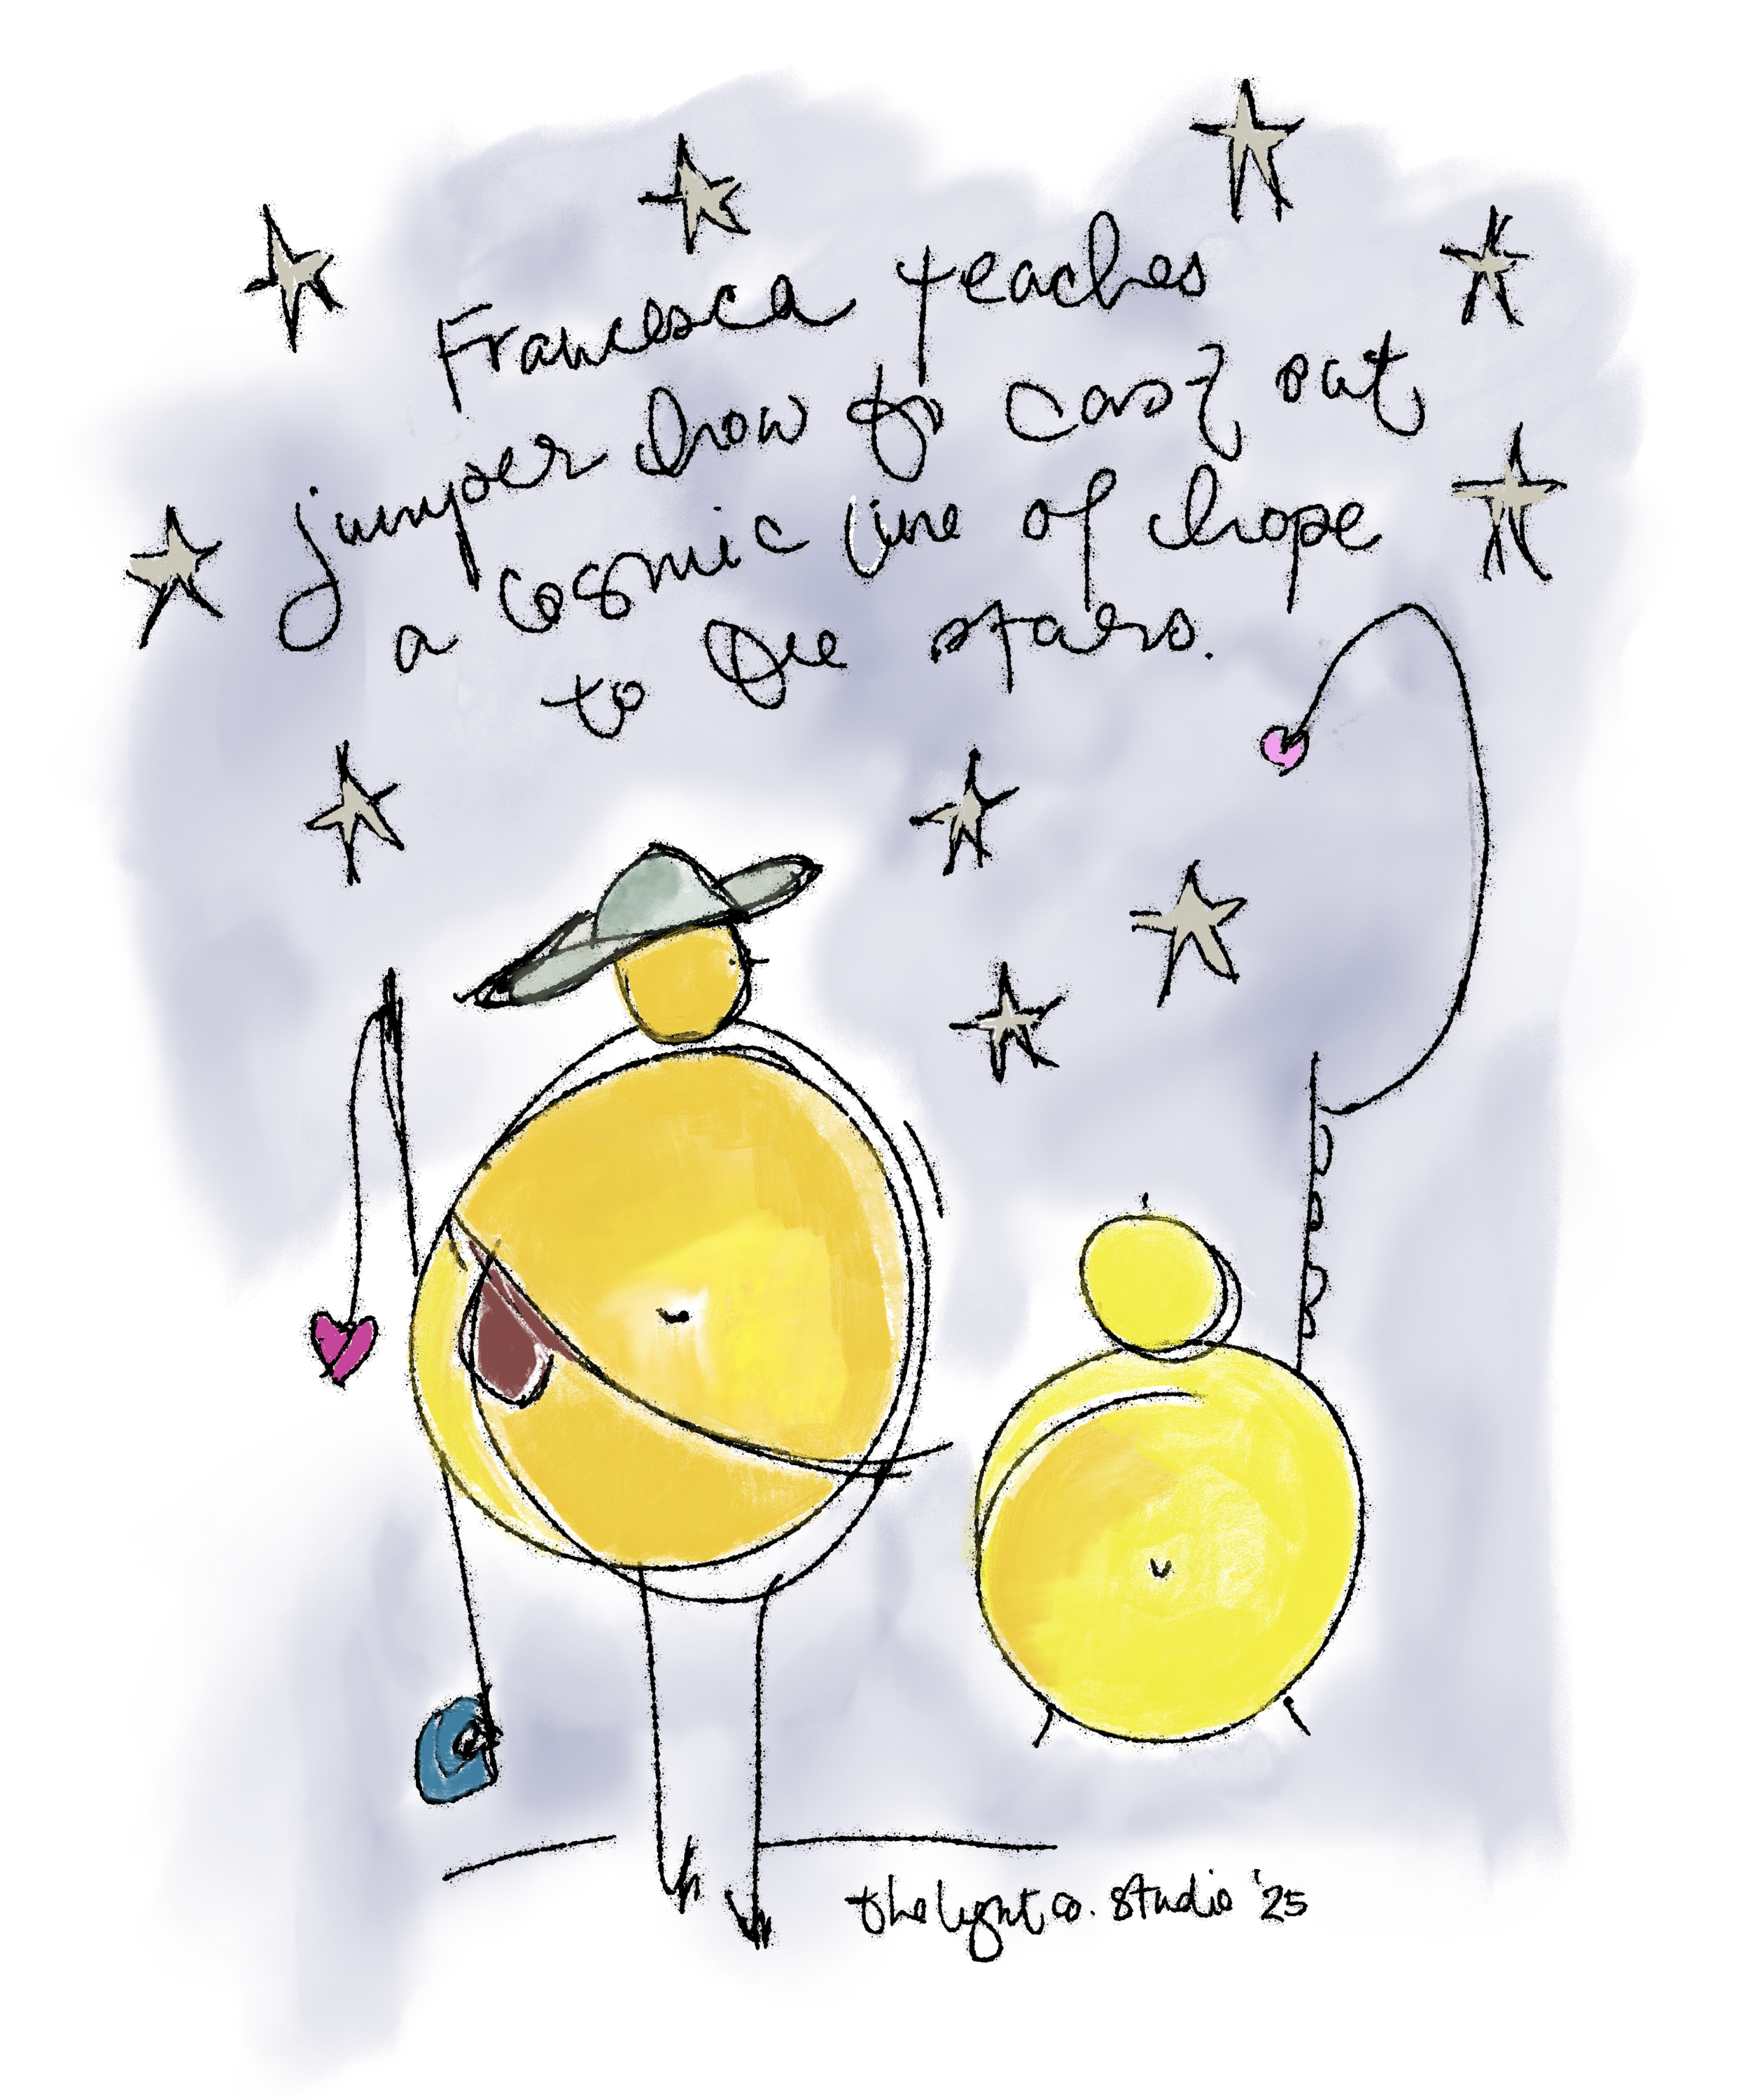 Francesca teaches
jumper how to cast out
a cosmic line of hope
to the stars.
thelightco. studio '25